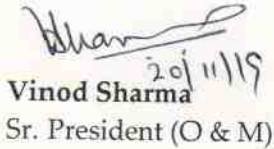 20/11/19
Vinod Sharma
Sr. President (O & M)